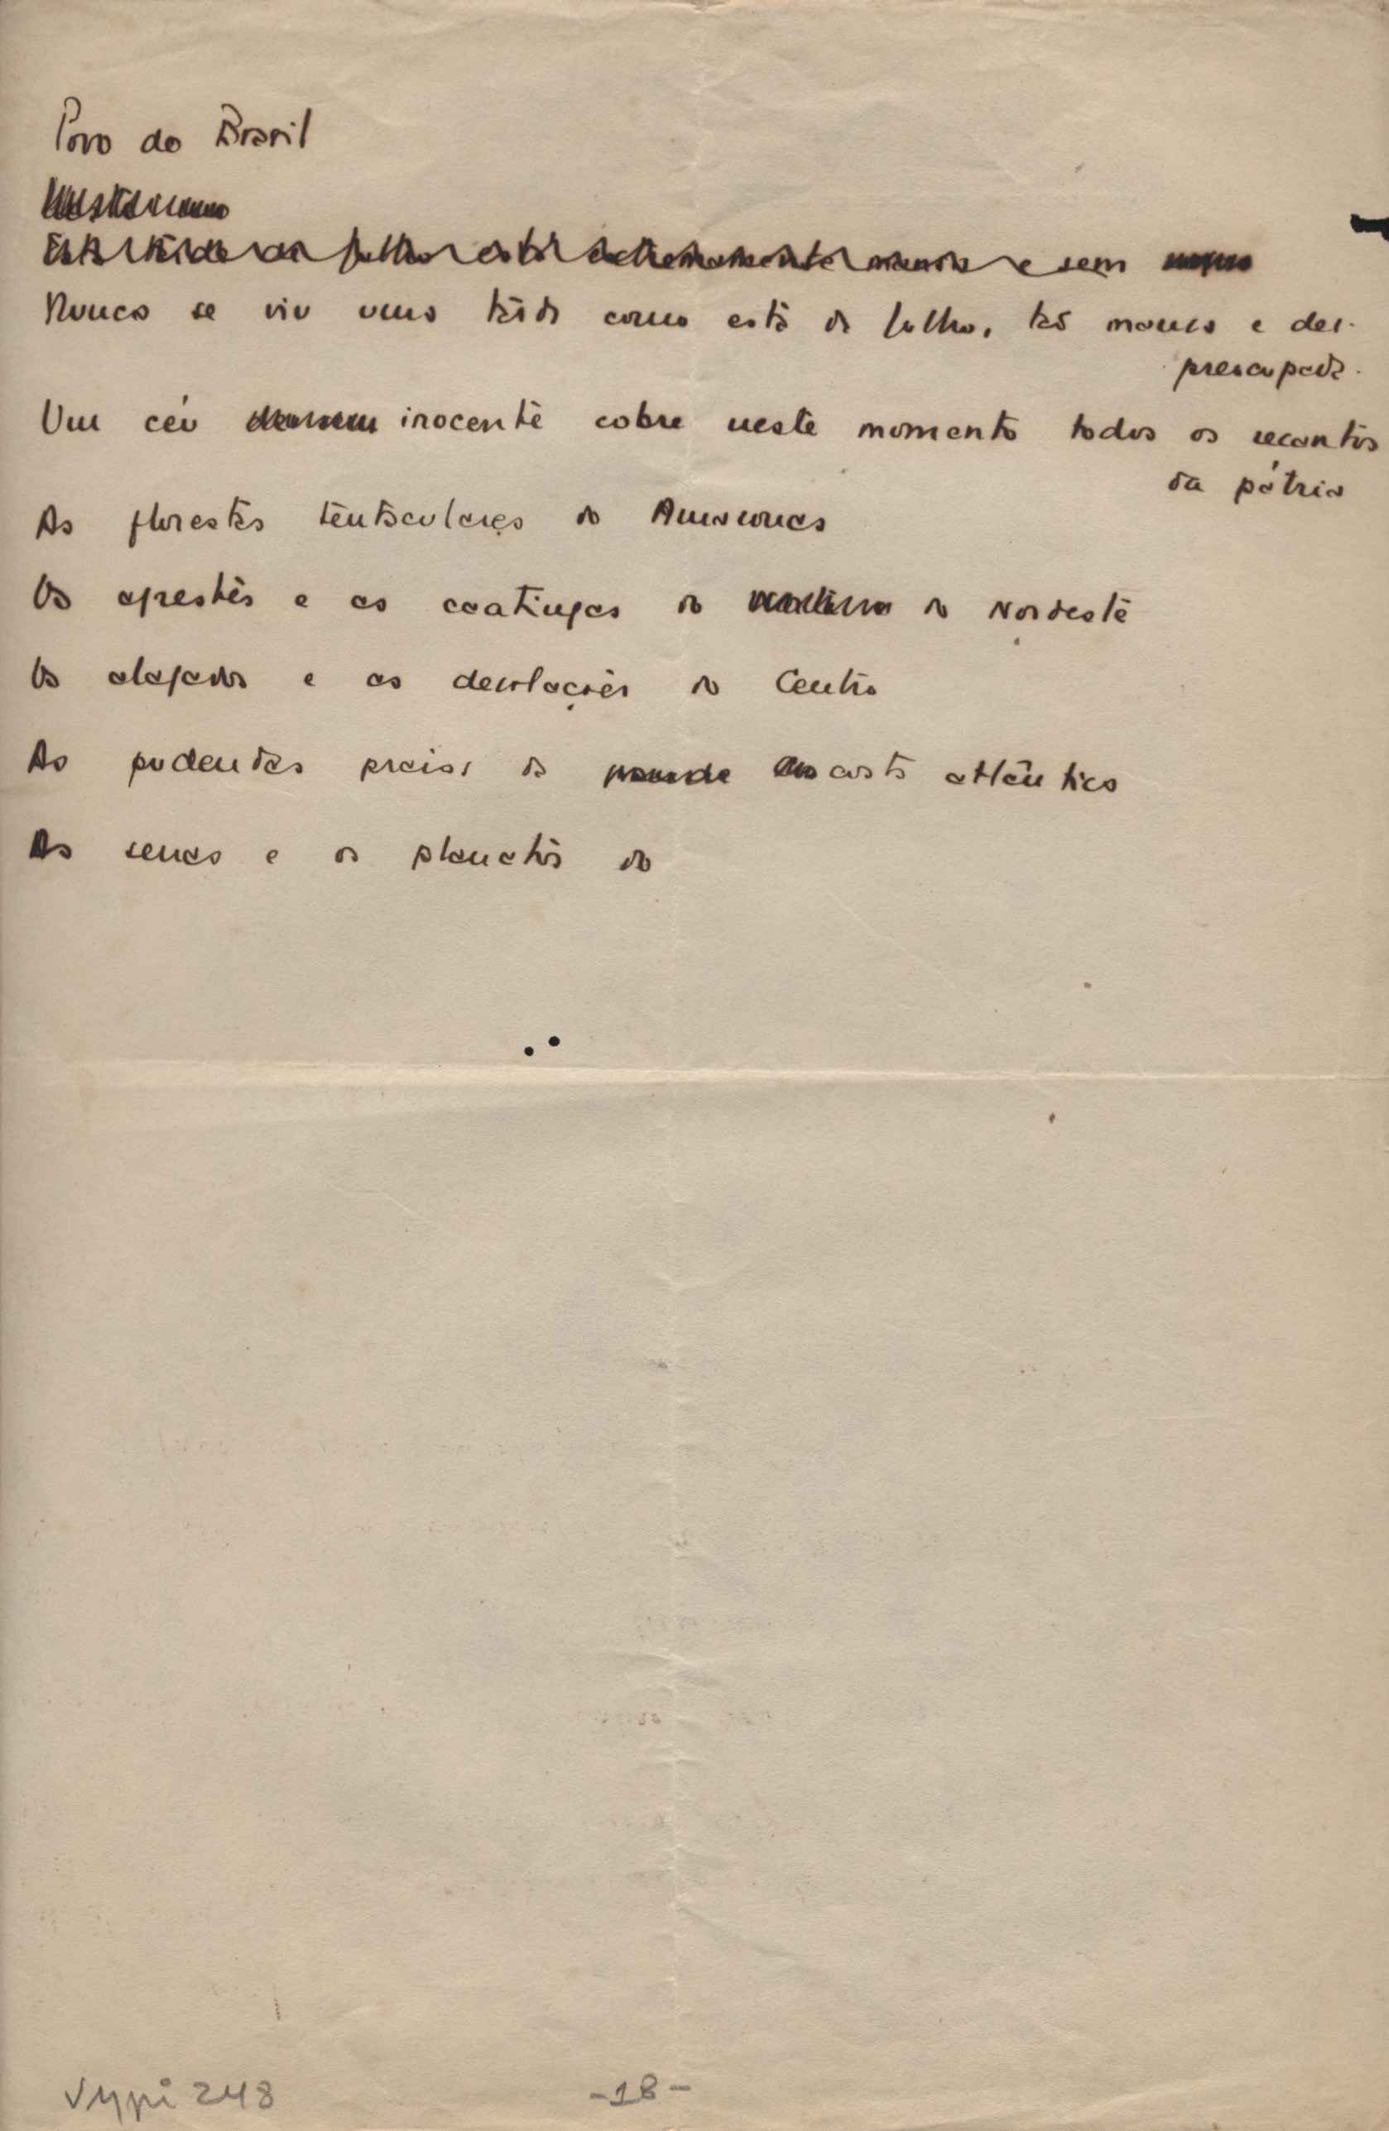 Povo do Brasil
Esta tarde de julho está extremamente mansa e sem
Nunca se viu uma tarde como esta de julho, tão mansa e des-
preocupada.
Um céu inocente cobre neste momento todos os recantos
da pátria
As florestas tentaculares do Amazonas
Os agrestes e as caatingas do do Nordeste
Os alagados e as desolações do Centro
As pudendas praias da costa atlântica
As serras e os planaltos do
Vypi 248
-18-